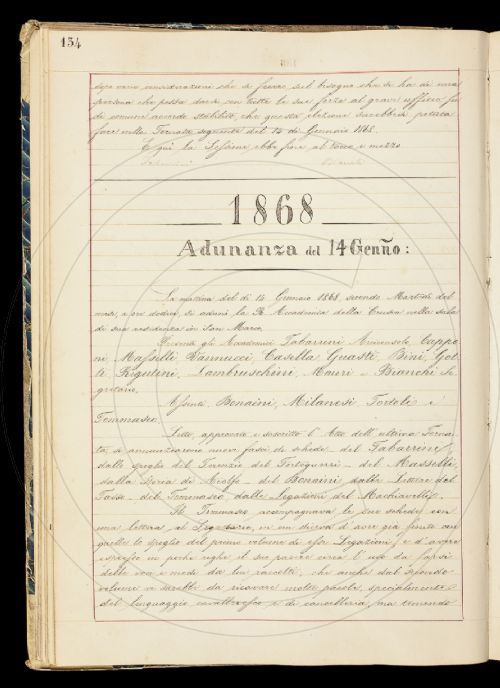 154
dopo varie considerazioni che si fecero sul bisogno che si ha di una
persona che possa darsi con tutte le sue forze al grave ufficio, fu
di comune accordo stabilito, che questa elezione sarebbesi potuta
fare nella Tornata seguente del 14 di Gennaio 1868.
E qui la Sessione ebbe fine al tocco e mezzo.
1868
Adunanza del 14 Genño:
La mattina del dì 14 Gennaio 1868, secondo Martedì del
mese, a ore dodici si adunò la R. Accademia della Crusca nella sala
di sua residenza in San Marco.
Presenti gli Accademici Tabarrini Arciconsolo, Cappo-
ni, Masselli, Vannucci, Casella, Guasti, Bini, Gal-
ti, Rigutini, Lambruschini, Mauri e Bianchi Se-
gretario.
Assenti, Bonaini, Milanesi, Tortoli e
Tommaseo.
Letto, approvato e soscritto l'Atto dell'ultima Torna-
ta, si annunziarono nuovi fasci di schede del Tabarrini
dallo spoglio del Terenzio del - del Masselli,
dalla Storia di - del Bonaini, dalle Lettere del
Tasso - del Tommaseo, dalle Legazioni del Machiavelli.
Il Tommaseo accompagnava le sue schede con
una lettera al Segretario, in cui diceva d'aver già finito con
quelle lo spoglio del primo volume di esse Legazioni, e d'avere
espresso in poche righe il suo parere circa l'uso da farsi
delle voci e modi da lui raccolti; che anche dal secondo
volume vi sarebbe da ricavare molte parole, specialmente
del linguaggio cavalleresco e di cancelleria, ma temendo